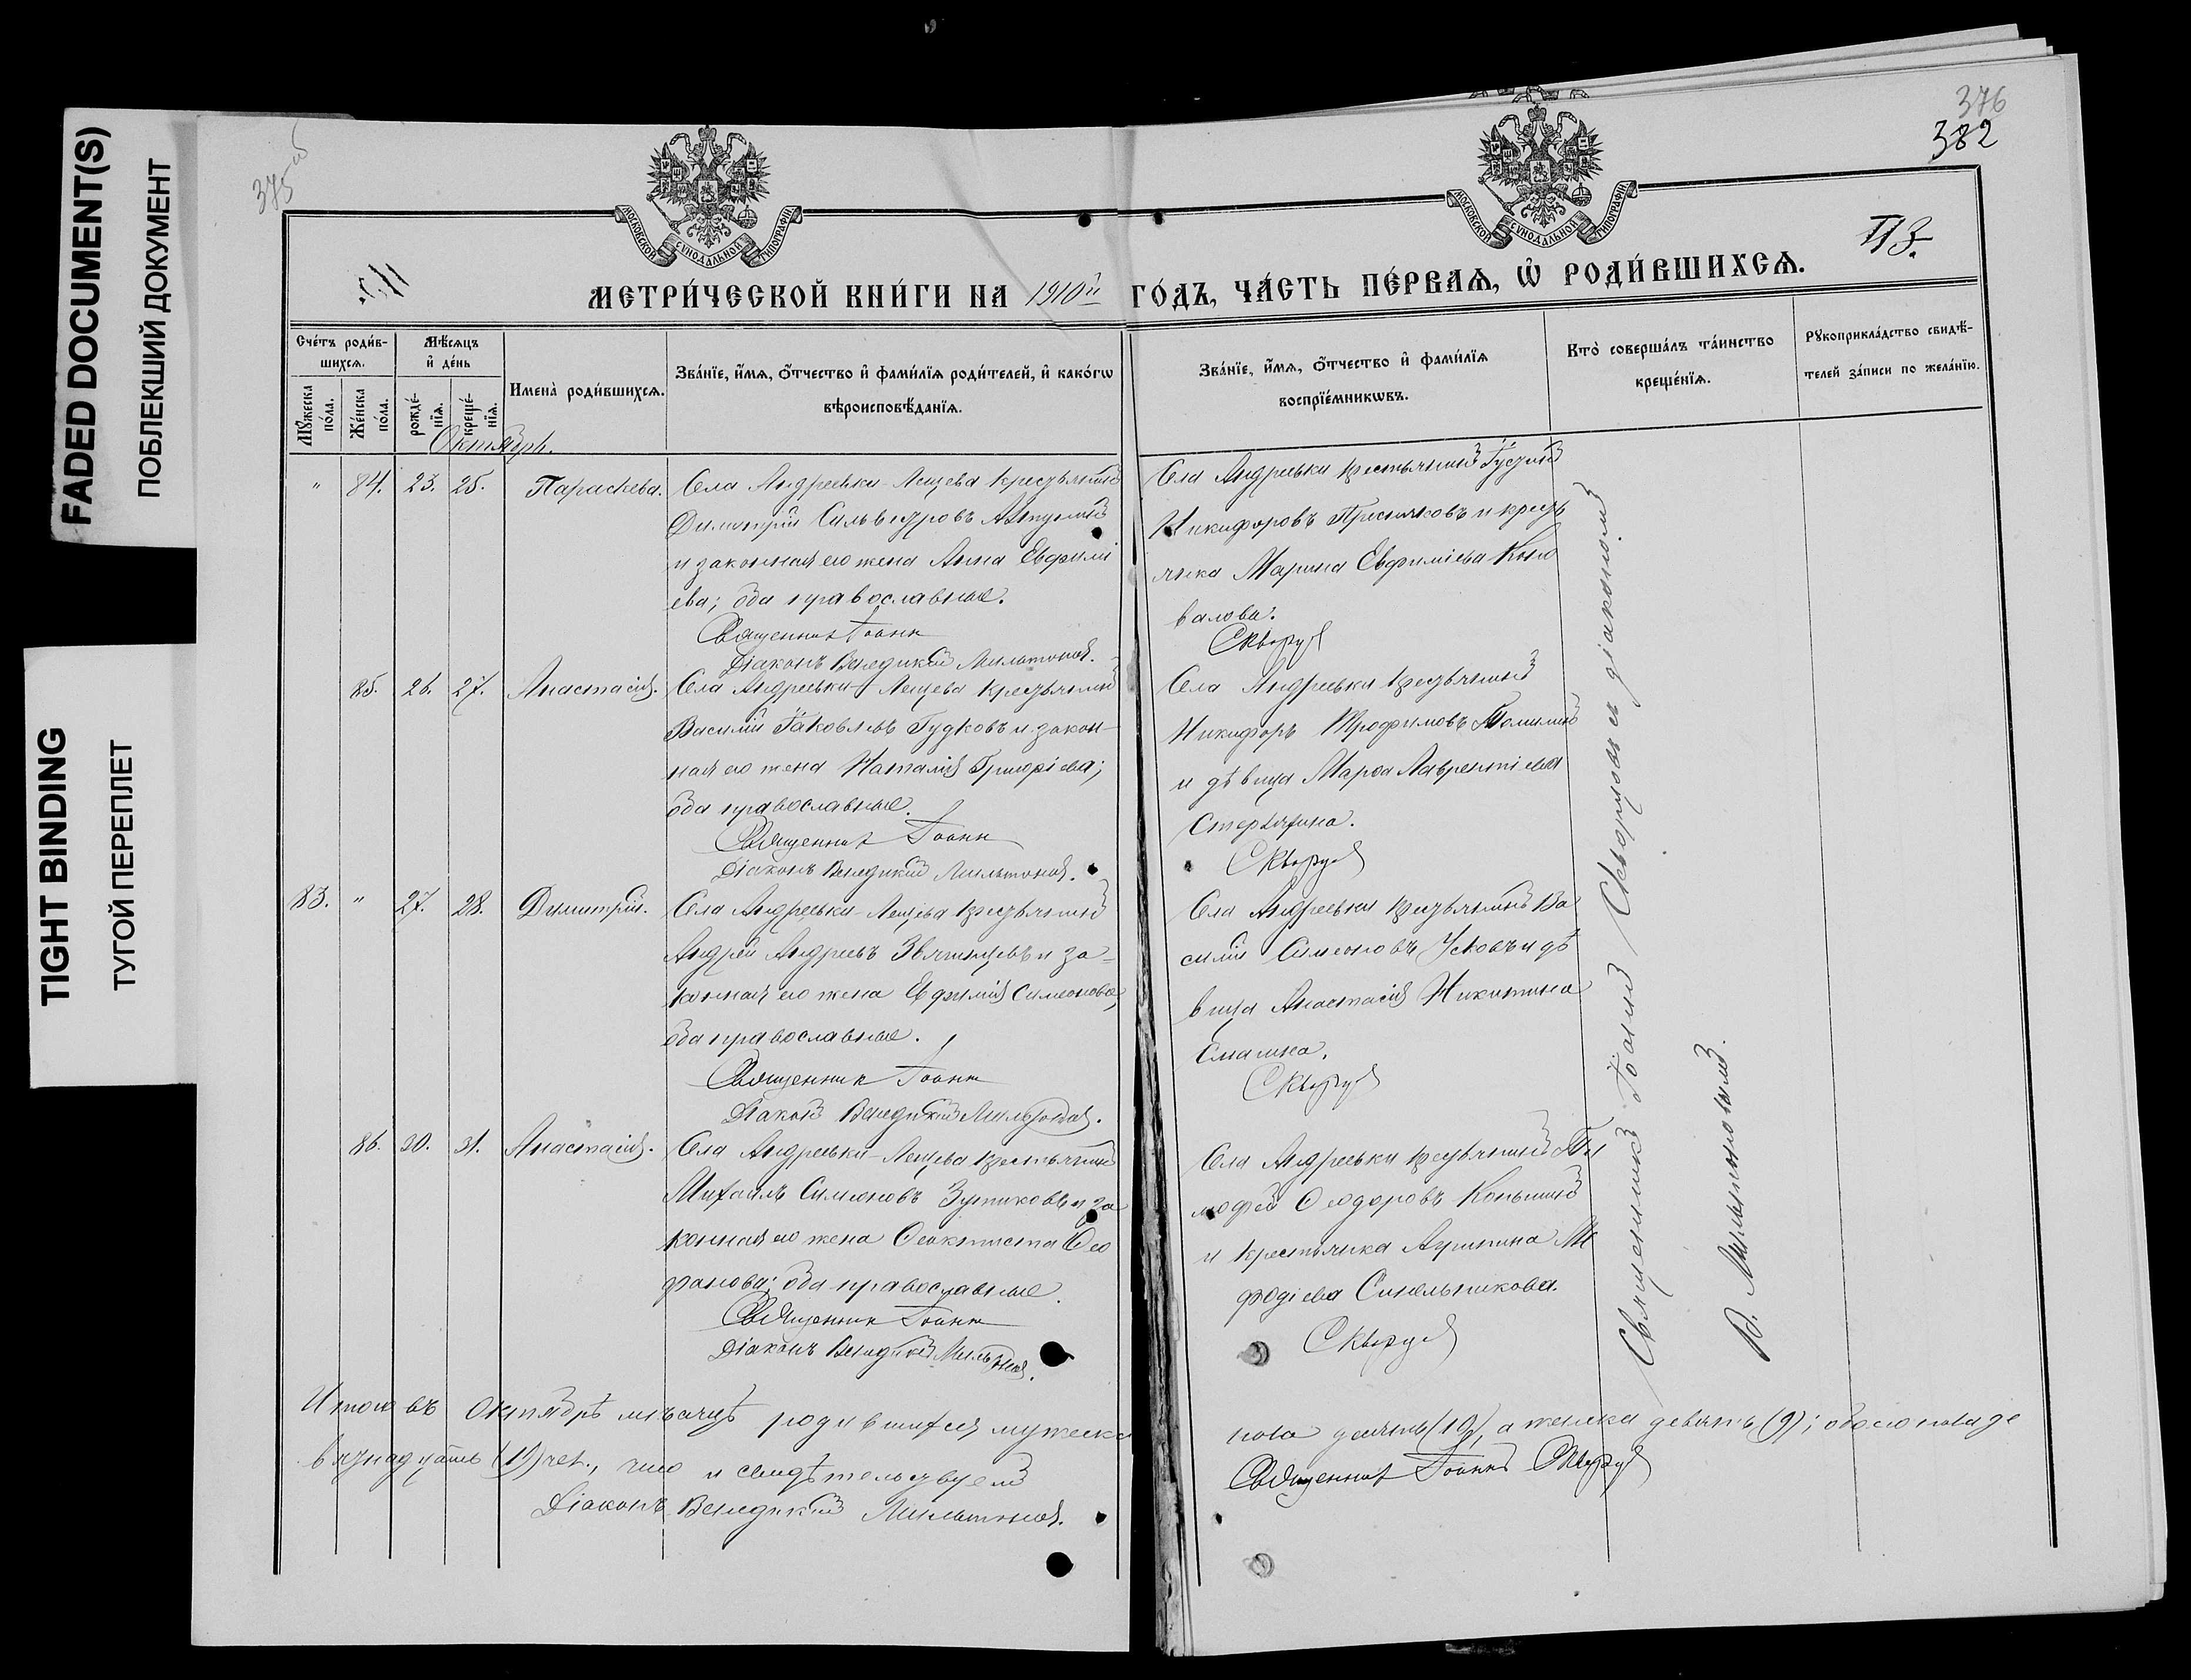 FADED DOCUMENT(S)
ПОБЛЕКШИЙ ДОКУМЕНТ
TIGHT BINDING
ТУГОЙ ПЕРЕПЛЕТ
375 об
376
382
МОСКОВСКОЙ СѴНОДАЛЬНОЙ ТИПОГРАФІИ
МОСКОВСКОЙ СѴНОДАЛЬНОЙ ТИПОГРАФІИ
113.
МЕТРИ́ЧЕСКОЙ КНИ́ГИ НА 1910й ГО́ДЪ, ЧА́СТЬ ПЕ́РВАѦ, Ѿ РОДИ́ВШИХСѦ.
Сче́тъ роди́в-
шихсѧ.
Мꙋ́жеска по́ла.
Же́нска по́ла.
Мѣ́сѧцъ
и҆ де́нь
рожде́-
нїѧ.
креще́-
нїѧ.
Имена̀ роди́вшихсѧ.
Зва́нїе, и҆́мѧ, ѻ҆́тчество и҆ фами́лїѧ роди́телей, и҆ како́гѡ
вѣроисповѣ́данїѧ.
Зва́нїе, и҆́мѧ, ѻ҆́тчество и҆ фами́лїѧ
воспрїе́мникѡвъ.
Кто̀ соверша́лъ та́инство
креще́нїѧ.
Рꙋкоприкла́дство свидѣ́-
телей за́писи по жела́нїю.
Октябрь.
" 84. 23. 25. Параскева. Села Андреевки-Лещева крестьянинъ
Димитрій Сильвестровъ
и законная его жена Анна Евфимі
ева; оба православные.
Священникъ Іоаннъ
Діаконъ Венедиктъ Мильтоновъ.
Села Андреевки крестьянинъ
Никифоровъ Пресняковъ и кресть
янка Марина Евфиміева Коно
валова.
Скворцовъ
85. 26. 27. Анастасія. Села Андреевки-Лещева крестьянинъ
Василій Іаковлевъ Гудковъ и закон-
ная его жена Наталія Григоріева;
оба православные.
Священникъ Іоаннъ
Діаконъ Венедиктъ Мильтоновъ.
Села Андреевки крестьянинъ
Никифоръ Трофимовъ
и дѣвица Марѳа Лаврентіева
Скворцовъ
83. " 27. 28. Димитрій. Села Андреевки-Лещева крестьянинъ
Андрей Андреевъ Звягинцевъ и за-
конная его жена Евфимія Симеонова,
оба православные.
Священникъ Іоаннъ
Діаконъ Венедиктъ Мильтоновъ.
Села Андреевки крестьянинъ Ва
силій Симеоновъ Усковъ и дѣ
вица Анастасія Никитина
Скворцовъ
86. 30. 31. Анастасія. Села Андреевки-Лещева крестьянинъ
Михаилъ Симеоновъ и за
конная его жена Ѳеоктиста Ѳео
фанова; оба православные.
Священникъ Іоаннъ
Діаконъ Венедиктъ Мильтоновъ.
Села Андреевки крестьянинъ Ти
мофей Ѳеодоровъ Коньшинъ
и крестьянка Агрипина Ме
фодіева Синельникова.
Скворцовъ
Священникъ Іоаннъ Скворцовъ съ діакономъ
В. Мильтоновымъ.
Итого въ Октябрѣ мѣсяцѣ родившихся мужеска пола десять (10), а женска девять (9); обоего пола де
вятнадцать (19) чел., что и свидѣтельствуемъ
Священникъ Іоаннъ Скворцовъ
Діаконъ Венедиктъ Мильтоновъ.